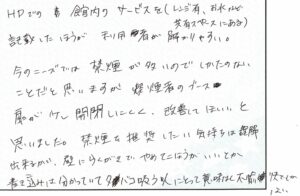 HPでの 館内の サービスを(レンジ有、お水など
共有スペースにある)
記載したほうが 利用者が 解かりやすい。
今のニーズでは 禁煙が多いのでしかたのない
ことだと思いますが 喫煙者のブース
扉が 開閉しにくく、改善してほしいと
思いました。禁煙を推奨したい気持ちは理解
出来ますが、壁に やめてたほうが いいとか
書き込みは分かっていて タバコ吸う人にとって 意味はく不愉快でし